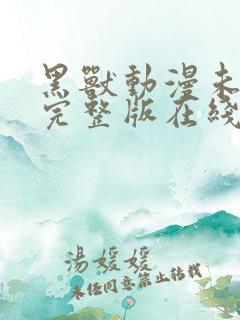 黑獸動漫未
完整版在綫
湯媛媛
未經同意禁止轉載